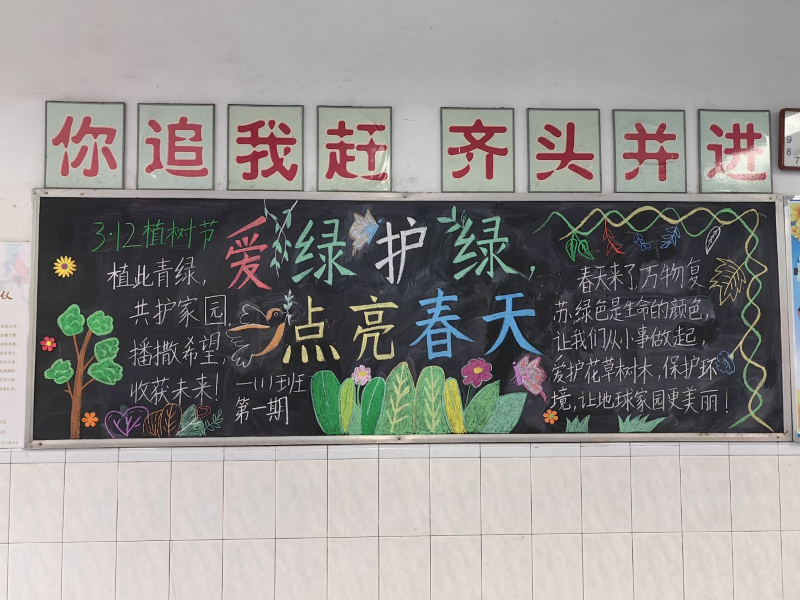 你追我赶 齐头并进
3·12植树节
植此青绿，
共护家园，
播撒希望，
收获未来！
爱绿护绿，
点亮春天
一(1)班
第一期
春天来了,万物复
苏,绿色是生命的颜色,
让我们从小事做起,
爱护花草树木,保护环
境,让地球家园更美丽！